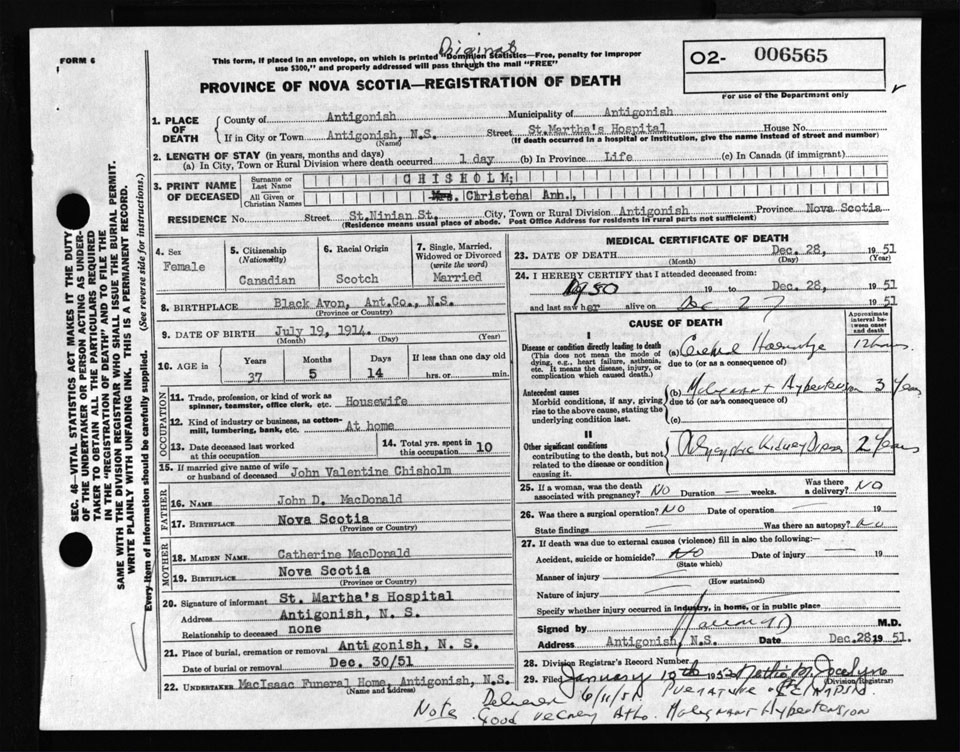 Original
FORM 6
This form, if placed in an envelope, on which is printed "Dominion Statistics—Free, penalty for improper
use $300," and properly addressed will pass through the mail "FREE"
O2- 006565
For use of the Department only
PROVINCE OF NOVA SCOTIA—REGISTRATION OF DEATH
SEC. 46—VITAL STATISTICS ACT MAKES IT THE DUTY
OF THE UNDERTAKER OR PERSON ACTING AS UNDER-
TAKER TO OBTAIN ALL THE PARTICULARS REQUIRED
IN THE "REGISTRATION OF DEATH" AND TO FILE THE
SAME WITH THE DIVISION REGISTRAR WHO SHALL ISSUE THE BURIAL PERMIT.
WRITE PLAINLY WITH UNFADING INK. THIS IS A PERMANENT RECORD.
Every item of information should be carefully supplied. (See reverse side for instructions.)
1. PLACE OF DEATH
County of Antigonish Municipality of Antigonish
If in City or Town Antigonish, N.S. Street St.Martha's Hospital House No.
(Name) (If death occurred in a hospital or institution, give the name instead of street and number)
2. LENGTH OF STAY (in years, months and days)
(a) In City, Town or Rural Division where death occurred 1 day (b) In Province Life (c) In Canada (if immigrant)
3. PRINT NAME OF DECEASED
Surname or Last Name CHISHOLM;
All Given or Christian Names Mrs. Christena Ann.,
RESIDENCE No. Street St.Ninian St. City, Town or Rural Division Antigonish Province Nova Scotia
(Residence means usual place of abode. Post Office Address for residents in rural parts not sufficient)
4. Sex Female
5. Citizenship (Nationality) Canadian
6. Racial Origin Scotch
7. Single, Married, Widowed or Divorced (write the word) Married
8. BIRTHPLACE Black Avon, Ant.Co., N.S.
(Province or Country)
9. DATE OF BIRTH July 19, 1914.
(Month) (Day) (Year)
10. AGE in Years 37 Months 5 Days 14 If less than one day old hrs. or min.
OCCUPATION
11. Trade, profession, or kind of work as spinner, teamster, office clerk, etc. Housewife
12. Kind of industry or business, as cotton-mill, lumbering, bank, etc. At home
13. Date deceased last worked at this occupation
14. Total yrs. spent in this occupation 10
15. If married give name of wife or husband of deceased John Valentine Chisholm
FATHER
16. NAME John D. MacDonald
17. BIRTHPLACE Nova Scotia
(Province or Country)
MOTHER
18. MAIDEN NAME Catherine MacDonald
19. BIRTHPLACE Nova Scotia
(Province or Country)
20. Signature of informant St. Martha's Hospital
Address Antigonish, N. S.
Relationship to deceased none
21. Place of burial, cremation or removal Antigonish, N. S.
Date of burial or removal Dec. 30/51
22. UNDERTAKER MacIsaac Funeral Home, Antigonish, N.S.
(Name and address)
MEDICAL CERTIFICATE OF DEATH
23. DATE OF DEATH Dec. 28, 1951
(Month) (Day) (Year)
24. I HEREBY CERTIFY that I attended deceased from:
1950 19 to Dec. 28, 1951
and last saw her alive on Dec 27 1951
CAUSE OF DEATH
Approximate interval between onset and death
I
Disease or condition directly leading to death
(This does not mean the mode of dying, e.g., heart failure, asthenia, etc. It means the disease, injury, or complication which caused death.)
(a) Cerebral Haemorrhage 12 hours
due to (or as a consequence of)
Antecedent causes
Morbid conditions, if any, giving rise to the above cause, stating the underlying condition last.
(b) Malignant Hypertension 3 Years
due to (or as a consequence of)
(c)
II
Other significant conditions
contributing to the death, but not related to the disease or condition causing it.
Kidney 2 Years
25. If a woman, was the death associated with pregnancy? NO Duration — weeks. Was there a delivery? NO
26. Was there a surgical operation? NO Date of operation — 19
State findings — Was there an autopsy? No
27. If death was due to external causes (violence) fill in also the following:—
Accident, suicide or homicide? NO Date of injury 19
(State which)
Manner of injury
(How sustained)
Nature of injury
Specify whether injury occurred in industry, in home, or in public place
Signed by M.D.
Address Antigonish, N.S. Date Dec.28 1951.
28. Division Registrar's Record Number
29. Filed January 10th 1952
(Division Registrar)
Note
Malignant Hypertension